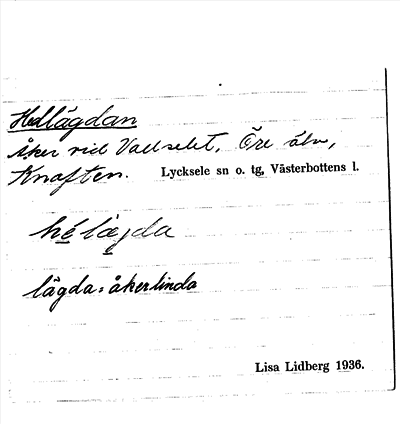 Hedlägdan
Åker vid Vallselet, Öre älv,
Knaften. Lycksele sn o. tg, Västerbottens l.
hé lägda
lägda = åkerlinda
Lisa Lidberg 1936.